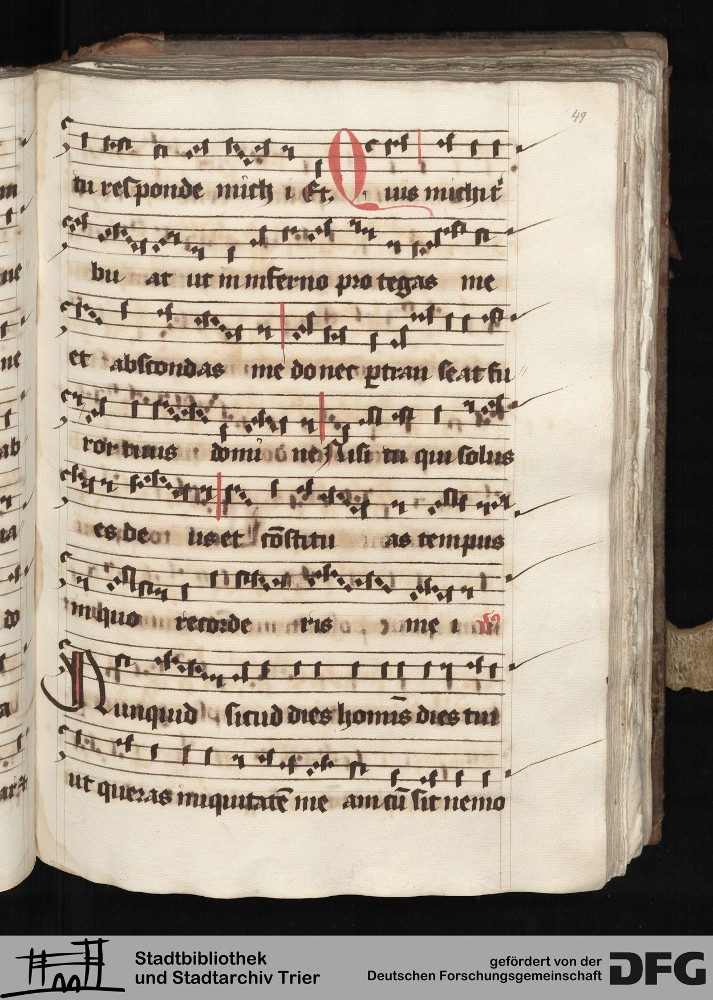 49
tu responde mich i Et. Quis michi t̾
bu at ut in inferno protegas me
et abscondas me donec ꝑtran seat fu
ror tuus domi ne Nisi tu qui solus
es de us et cōstitu as tempus
in quo recorde ris me i
Nunquid sicud dies homīs dies tui
ut queras iniquitatē me am cū sit nemo
Stadtbibliothek
und Stadtarchiv Trier
gefördert von der
Deutschen Forschungsgemeinschaft
DFG